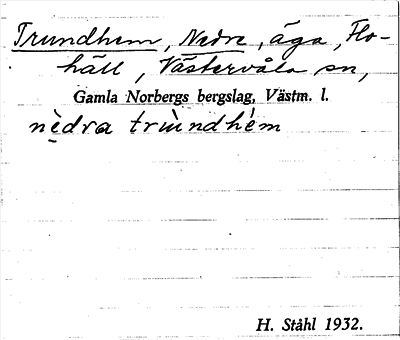 Trundhem, Nedre, äga, Flo-
häll, Västervåla sn,
Gamla Norbergs bergslag, Västm. l.
nèdra trùndhém
H. Ståhl 1932.